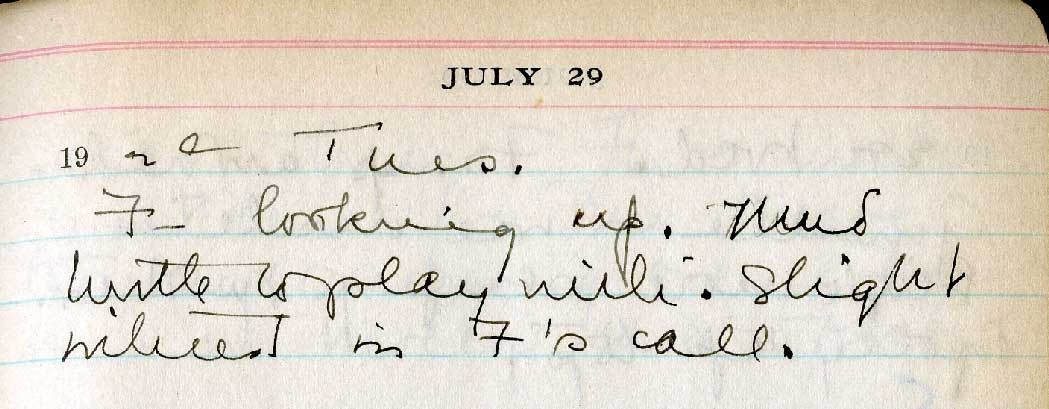 JULY 29
19 Tues.
7- looking up. Mud
turtle to play with. Slight
interest in 7's call.